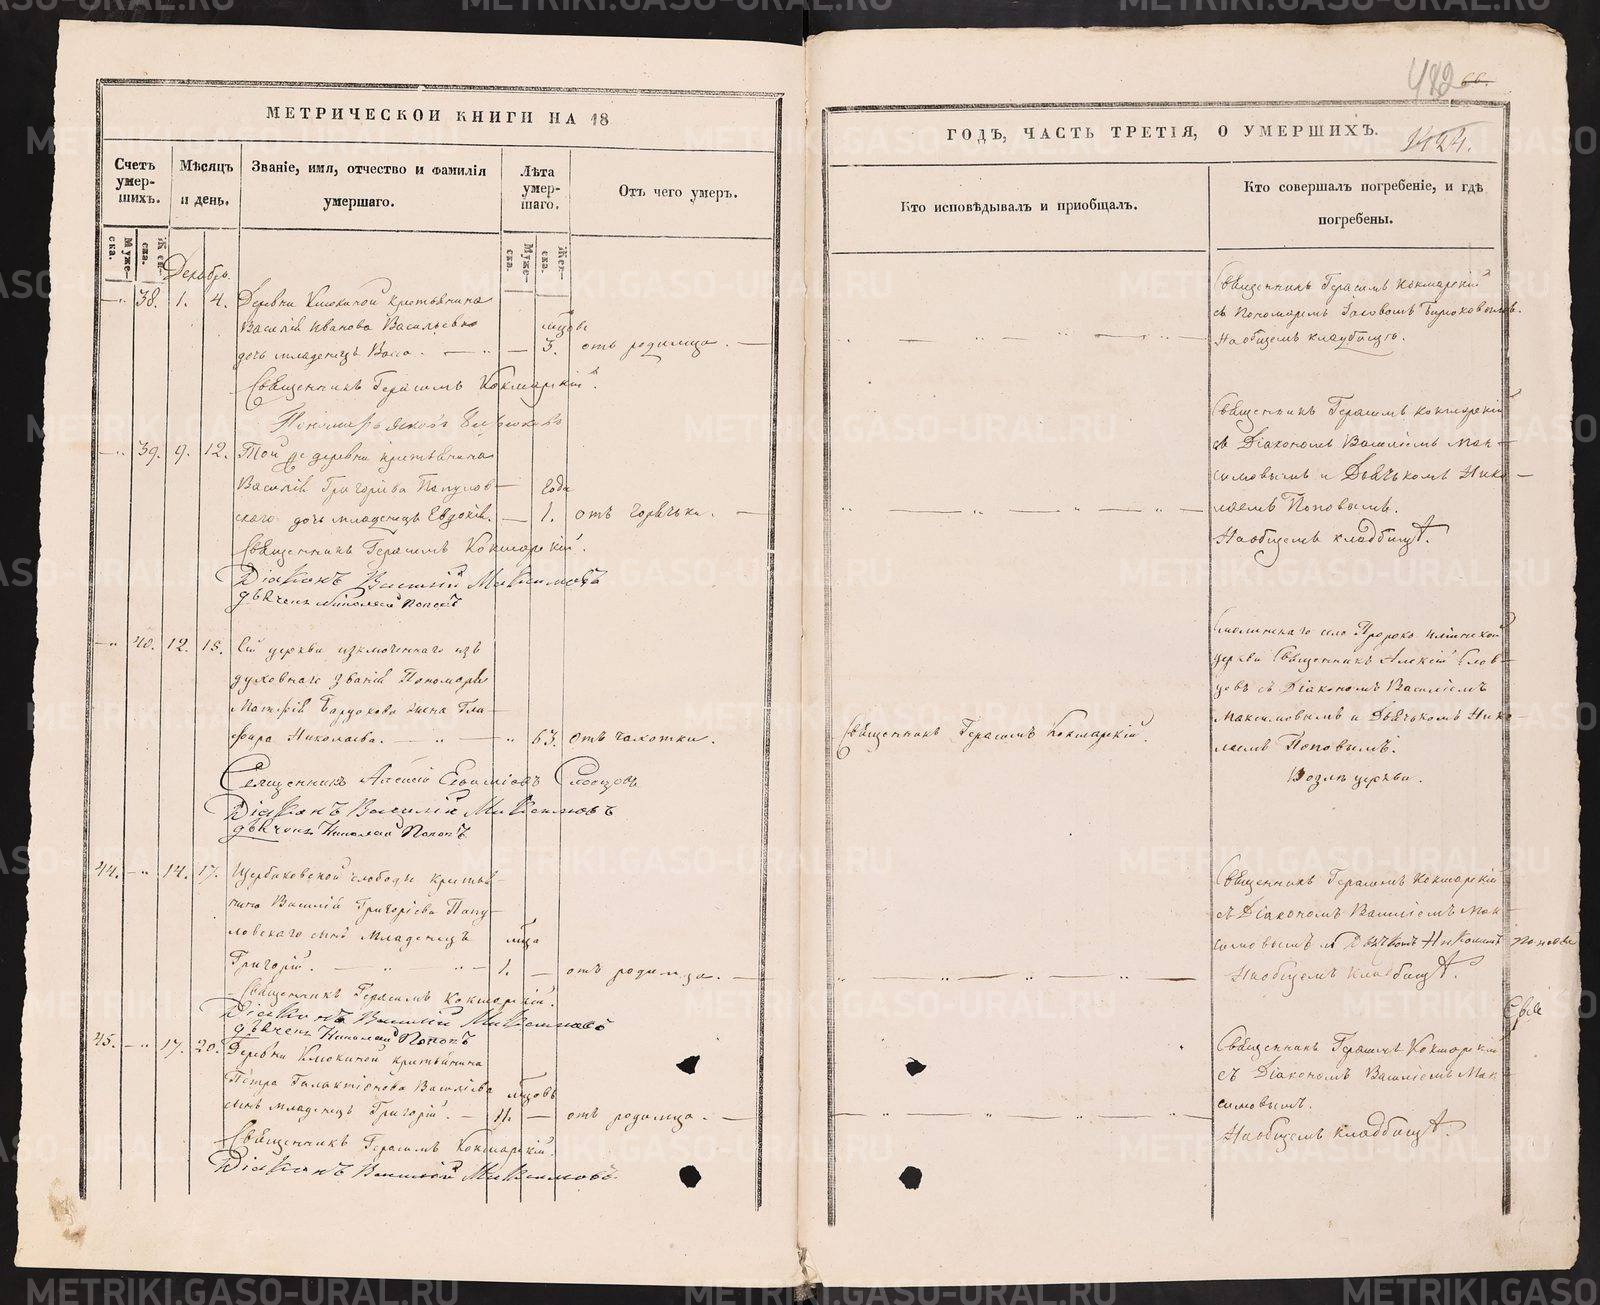 МЕТРИЧЕСКОЙ КНИГИ НА 18
Счетъ умер-шихъ.
Муже-ска.
Жен-ска.
Мѣсяцъ и день.
Званіе, имя, отчество и фамилія умершаго.
Лѣта умер-шаго.
Муже-ска.
Жен-ска.
Отъ чего умеръ.
Декабрь.
38. 1. 4. Деревни крестьянина
Василія Иванова Васильева мѣсяцовъ
дочь младенецъ Васса. 3. отъ родимца.
Священникъ Герасимъ Кокшарскій.
Пономарь Іаковъ Бирюковъ
39. 9. 12. Той же деревни крестьянина
Василія Григоріева Папулов- года
скаго дочь младенецъ Евдокія. 1. отъ горячки.
Священникъ Герасимъ Кокшарскій.
Діаконъ Василій Максимовъ
дьячекъ Николай Поповъ
40. 12. 15. Сей церкви изключеннаго изъ
духовнаго званія Пономаря
жена Гла-
фира Николаева. 63. отъ чахотки.
Священникъ Алексій Словцовъ
Діаконъ Василій Максимовъ
дьячекъ Николай Поповъ
44. 14. 17. Щербаковской слободы крестья-
нина Василія Григоріева Папу-
ловскаго сынъ младенецъ
Григорій. 1. отъ родимца.
Священникъ Герасимъ Кокшарскій.
Діаконъ Василій Максимовъ
дьячекъ Николай Поповъ
45. 17. 20. Деревни крестьянина
Петра Галактіонова Васильева мѣсяцовъ
сынъ младенецъ Григорій. 11. отъ родимца.
Священникъ Герасимъ Кокшарскій.
Діаконъ Василій Максимовъ.
482 66.
1424.
ГОДЪ, ЧАСТЬ ТРЕТІЯ, О УМЕРШИХЪ.
Кто исповѣдывалъ и пріобщалъ.
Кто совершалъ погребеніе, и гдѣ погребены.
Священникъ Герасимъ Кокшарскій
съ Пономаремъ Іаковомъ Бирюковымъ.
На общемъ кладбищѣ.
Священникъ Герасимъ Кокшарскій
съ Діакономъ Василіемъ Мак-
симовымъ и Дьячькомъ Нико-
лаемъ Поповымъ.
На общемъ кладбищѣ.
села Пророко Ильинской
церкви Священникъ Алексій Слов-
цовъ съ Діакономъ Василіемъ
Максимовымъ и Дьячькомъ Нико-
лаемъ Поповымъ.
Возлѣ церкви.
Священникъ Герасимъ Кокшарскій.
Священникъ Герасимъ Кокшарскій
съ Діакономъ Василіемъ Мак-
симовымъ и Дьячкомъ Николаемъ Поповы
На общемъ кладбищѣ.
Священникъ Герасимъ Кокшарскій
съ Діакономъ Василіемъ Мак-
симовымъ.
На общемъ кладбищѣ.
METRIKI.GASO-URAL.RU